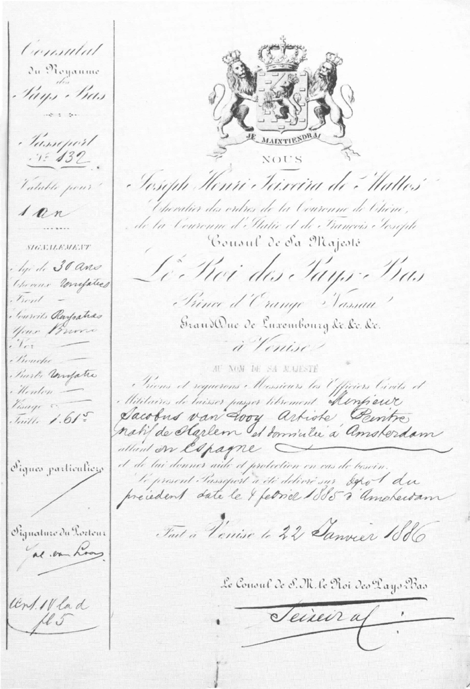 Consulat
du Royaume
des
Pays-Bas
Passeport
No. 132
Valable pour
1 an
SIGNALEMENT
Age de 30 Ans
Cheveux
Front —
Sourcils
Yeux Bruns
Nez —
Bouche —
Barbe
Menton —
Visage —
Taille 1.615
Signes particuliers
Signature du Porteur
Jac. van Looy
Art. IV
fl 5
JE MAINTIENDRAI
NOUS
Joseph Henri Teixeira de Mattos
Chevalier des ordres de la Couronne de Chêne,
de la Couronne d'Italie et de François Joseph
Consul de Sa Majesté
Le Roi des Pays-Bas
Prince d'Orange-Nassau
Grand Duc de Luxembourg &c. &c. &c.
à Venise
AU NOM DE SA MAJESTÉ
Prions et requerons Messieurs les Officiers Civils et
Militaires de laisser passer librement Monsieur
Jacobus van Looy Artiste Peintre
natif de Harlem et domicilié à Amsterdam
allant en Espagne
et de lui donner aide et protection en cas de besoin.
Le présent Passeport a été délivré sur dépôt du
précédent daté le 9 février 1885 d'Amsterdam
Fait à Venise le 22 Janvier 1886
Le Consul de S. M. le Roi des Pays Bas
Teixeira